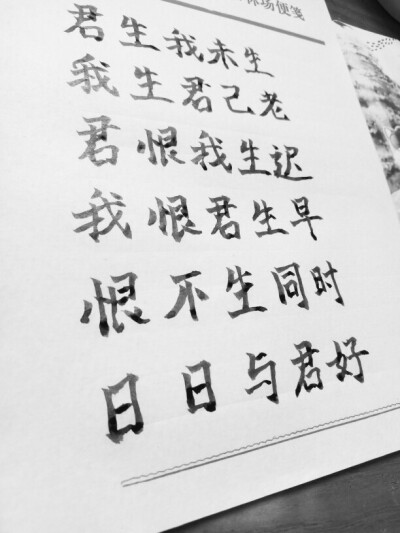 场便笺
君生我未生
我生君己老
君恨我生迟
我恨君生早
恨不生同时
日日与君好